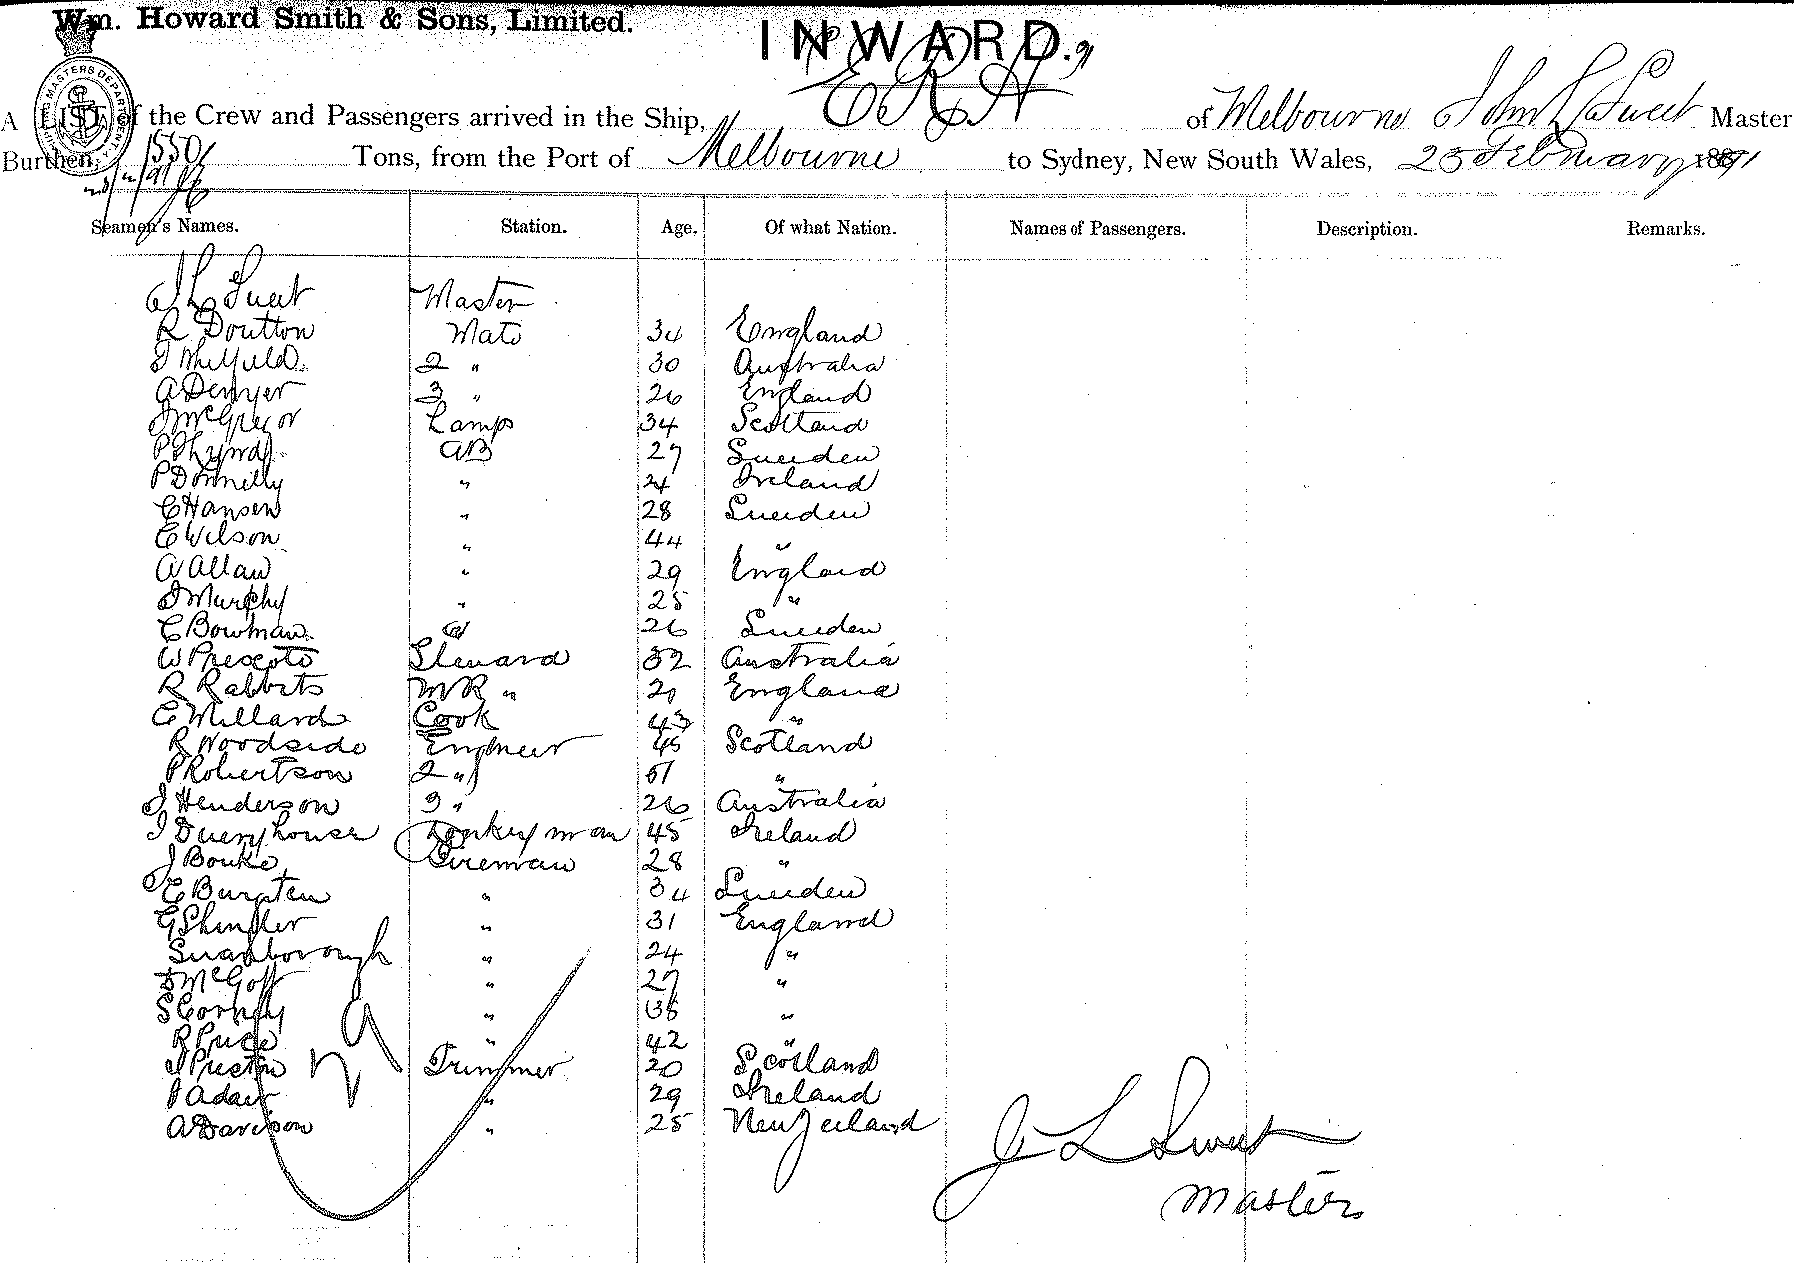 Wm. Howard Smith & Sons, Limited.
INWARD.
A LIST of the Crew and Passengers arrived in the Ship, ERA of Melbourne John L Sweet Master
Burthen, 1550 Tons, from the Port of Melbourne to Sydney, New South Wales, 25 February 1891
Seamen's Names. Station. Age. Of what Nation. Names of Passengers. Description. Remarks.
J L Sweet Master
R Doutton Mate 34 England
2 " 30 Australia
A Denyer 3 " 26 England
J McGregor Lamps 34 Scotland
P AB 27 Sweden
P Donnelly " 24 Ireland
C Hansen " 28 Sweden
E Wilson " 44 "
A Allan " 29 England
J Murphy " 25 "
C Bowman 26 Sweden
W Prescott Steward 32 Australia
R Rabbits MR " 21 England
E Millard Cook 43 "
R Woodside Engineer 45 Scotland
P Robertson 2 " 51 "
J Henderson 3 " 26 Australia
J Dueryhouse Donkeyman 45 Ireland
J Bouke Fireman 28 "
E Burgten " 34 Sweden
G Shingler " 31 England
Swanborough " 24 "
D McGoff " 27 "
S Corney " 38 "
R Price " 42 "
J Preston Trimmer 20 Scotland
J Adair " 29 Ireland
A Davison " 25 New Zeeland
J L Sweet
Master